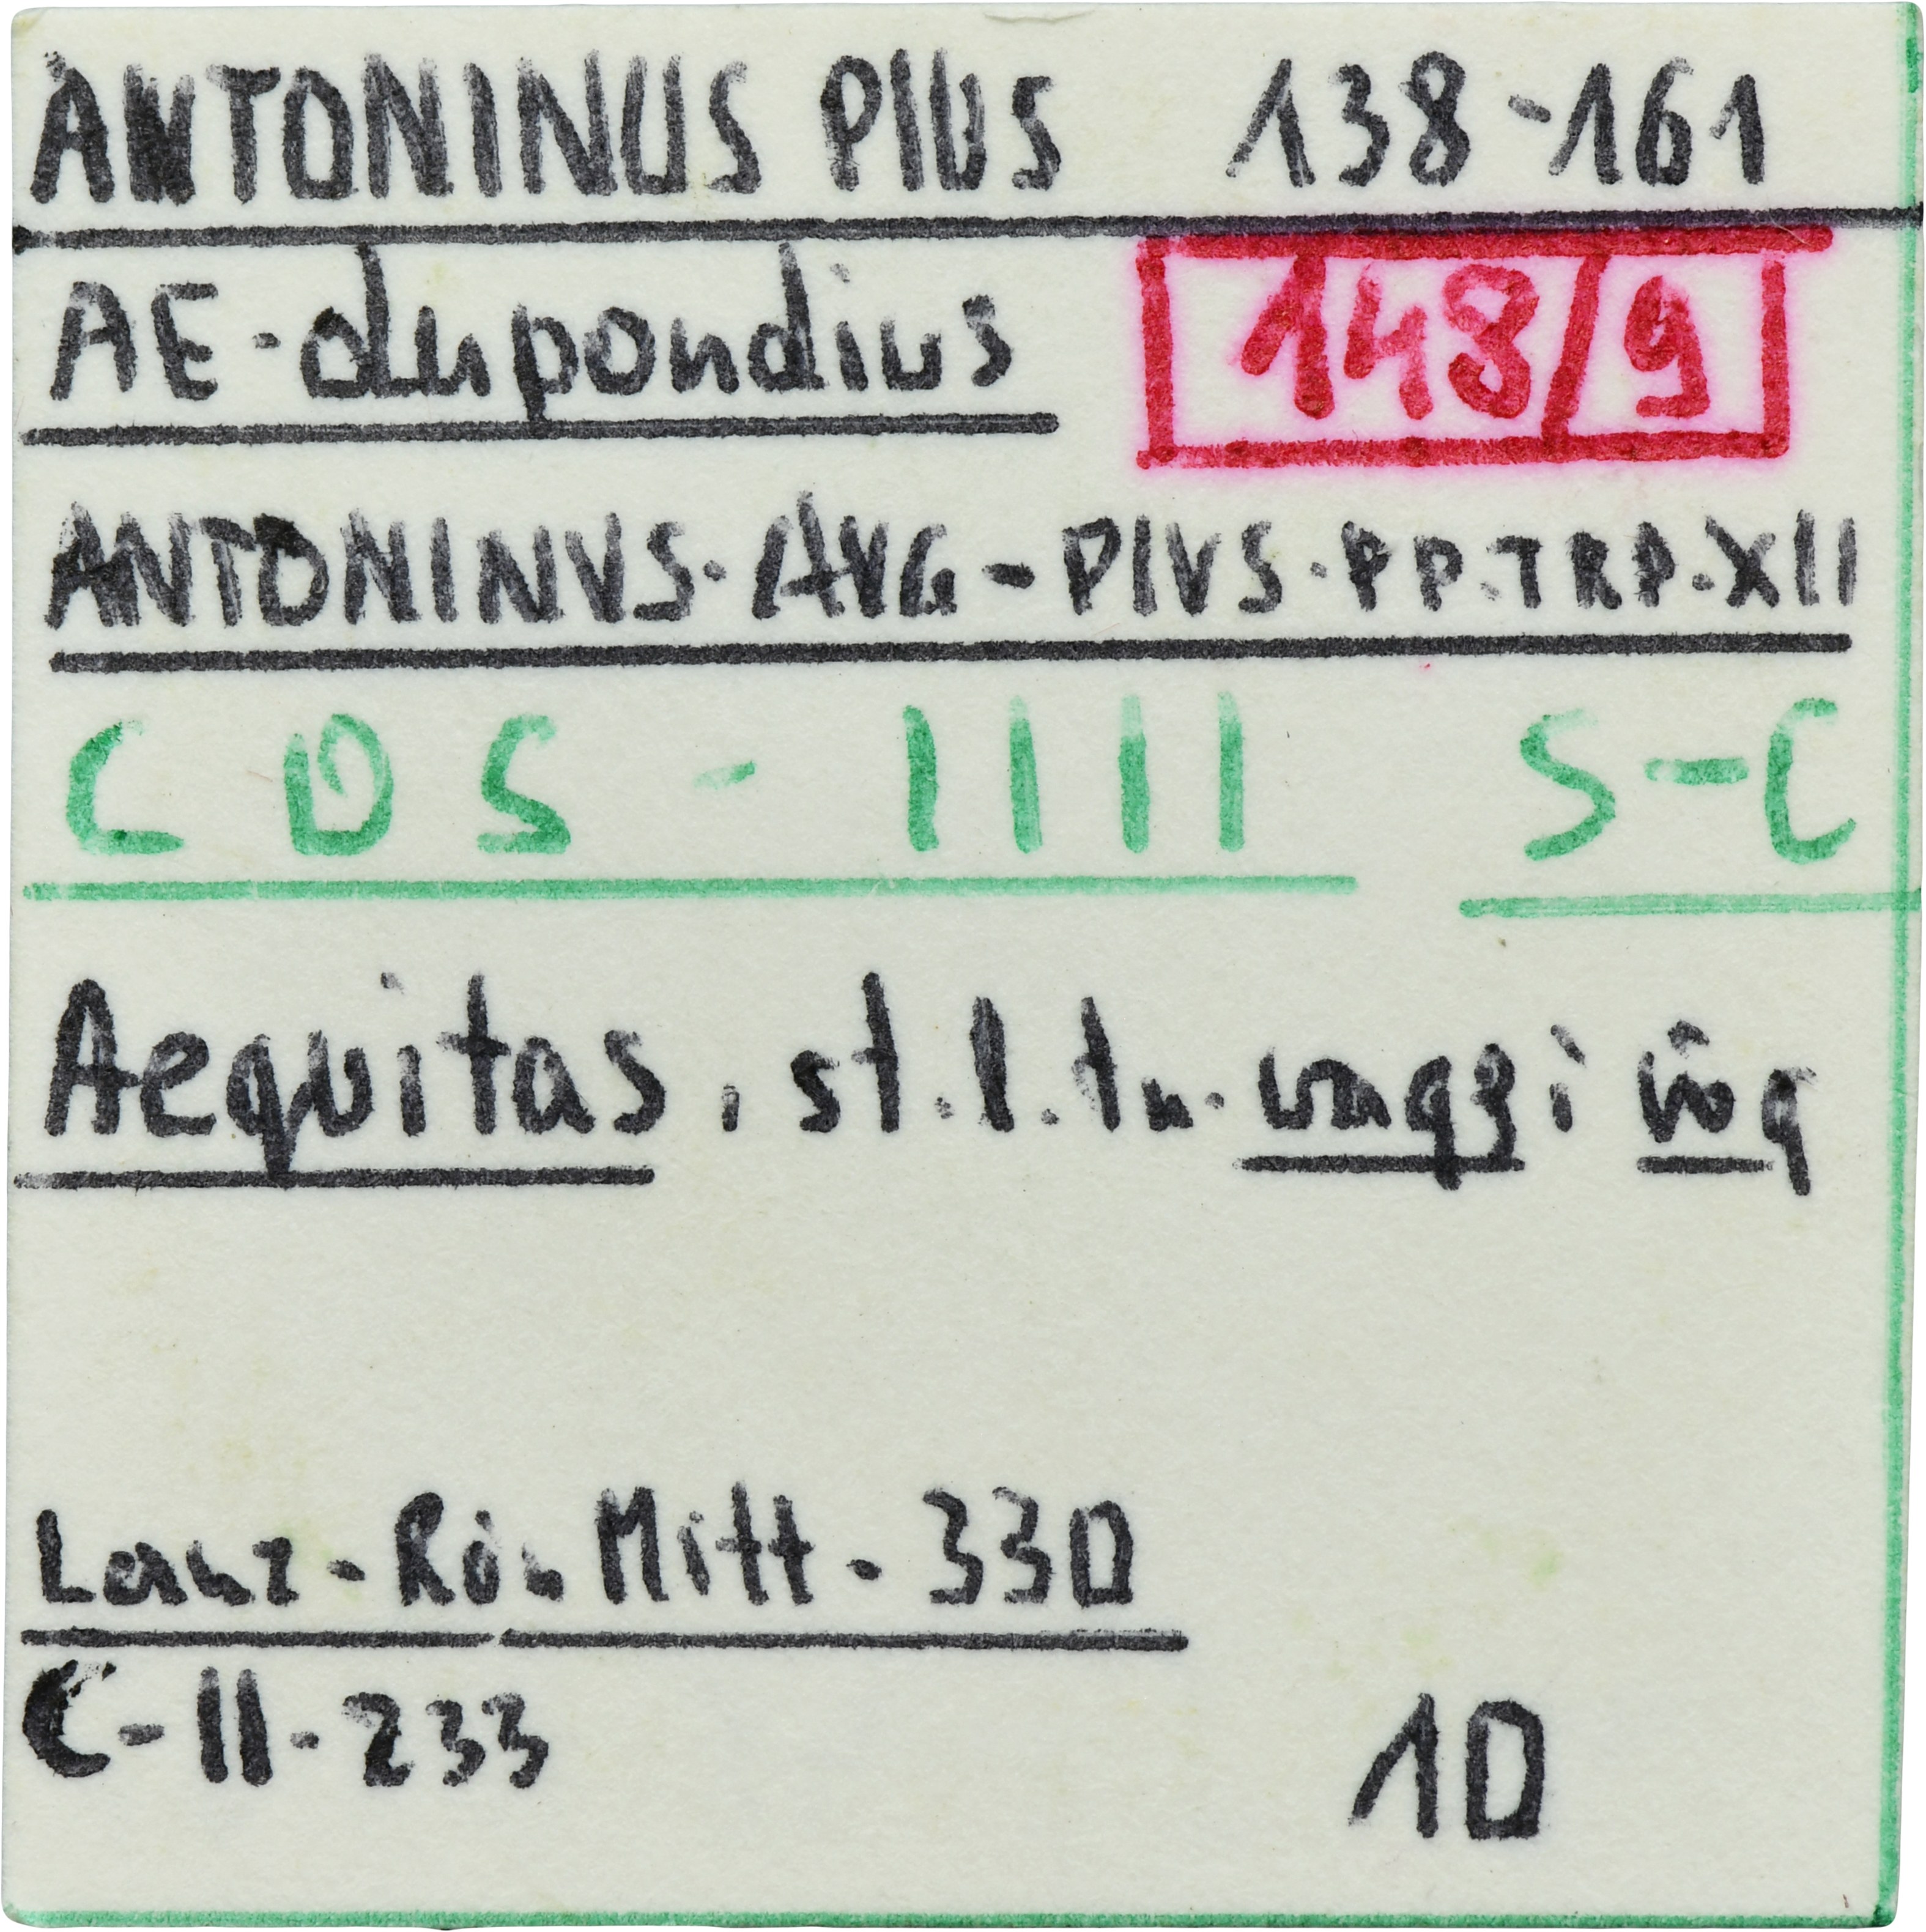 ANTONINUS PIUS 138-161
AE-dupondius 148/9
ANTONINVS·AVG-PIVS·PP·TRP·XII
COS-IIII S-C
Aequitas, st.l.tr.
Lanz-Röm Mitt-330
C-II-233 10